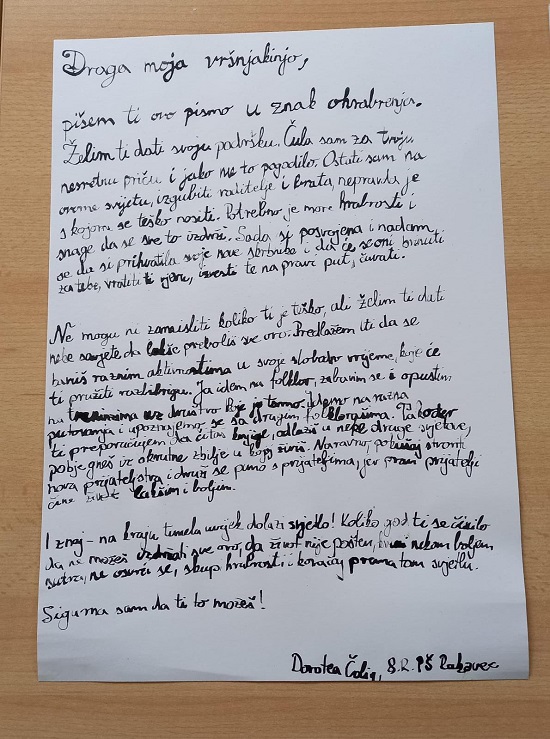 Draga moja vršnjakinjo,
pišem ti ovo pismo u znak ohrabrenja.
Želim ti dati svoju podršku. Čula sam za tvoju
nesretnu priču i jako me to pogodilo. Ostati sam na
ovome svijetu, izgubiti roditelje i brata, nepravda je
s kojom se teško nositi. Potrebno je more hrabrosti i
snage da se sve to izdrži. Sada si posvojena i nadam
se da si prihvatila svoje nove skrbnike i da će se oni brinuti
za tebe, vratiti ti vjeru, izvesti te na pravi put, čuvati.
Ne mogu ni zamisliti koliko ti je teško, ali želim ti dati
neke savjete da lakše preboliš sve ovo. Predlažem ti da se
baviš raznim aktivnostima u svoje slobodno vrijeme, koje će
ti pružiti razbibrigu. Ja idem na folklor, zabavim se i opustim
na treninzima uz društvo koje je tamo. Idemo na razna
putovanja i upoznajemo se sa drugim folklorašima. Također
ti preporučujem da čitaš knjige, odlaziš u neke druge svjetove,
pobjegneš iz okrutne zbilje u kojoj živiš. Naravno, pokušaj stvoriti
nova prijateljstva i druži se puno s prijateljima, jer pravi prijatelji
čine život lakšim i boljim.
I znaj - na kraju tunela uvijek dolazi svjetlo! Koliko god ti se činilo
da ne možeš izdržati sve ovo, da život nije pošten, nekom boljem
sutra, ne osvrći se, skupi hrabrosti i koračaj prema tom svjetlu.
Sigurna sam da ti to možeš!
Dorotea 8.R. PŠ